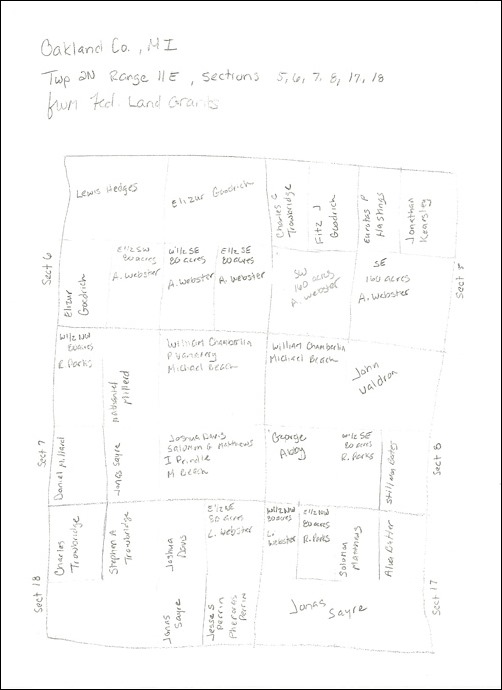 Oakland Co., MI
Twp 2N Range 11E, Sections 5, 6, 7, 8, 17, 18
from Fed. Land Grants
Lewis Hedges
Elizur Goodrich
Charles C
Trowbridge
Fitz J
Goodrich
Eurotas P
Hastings
Jonathan
Kearsley
Sect 6
Elizur
Goodrich
E1/2 SW
80 acres
A. Webster
W1/2 SE
80 acres
A. Webster
E1/2 SE
80 acres
A. Webster
SW
160 acres
A. Webster
SE
160 acres
A. Webster
Sect 5
W1/2 NW
80 acres
R. Parks
Nathaniel
Millerd
William Chamberlin
Michael Beach
William Chamberlin
Michael Beach
John
Waldron
Sect 7
Daniel Millard
Jonas Sayre
Joshua Davis
Solomon G Matthews
I Prindle
M Beach
George
Abby
W1/2 SE
80 acres
R. Parks
Stillman Bates
Sect 8
Charles
Trowbridge
Stephen A
Trowbridge
Joshua
Davis
E1/2 NE
80 acres
L. Webster
W1/2 NW
80 acres
L.
Webster
E1/2 NW
80 acres
R. Parks
Solomon
Matthews
Sect 18
Jonas
Sayre
Jesse S
Perrin
Perrin
Jonas
Sayre
Sect 17